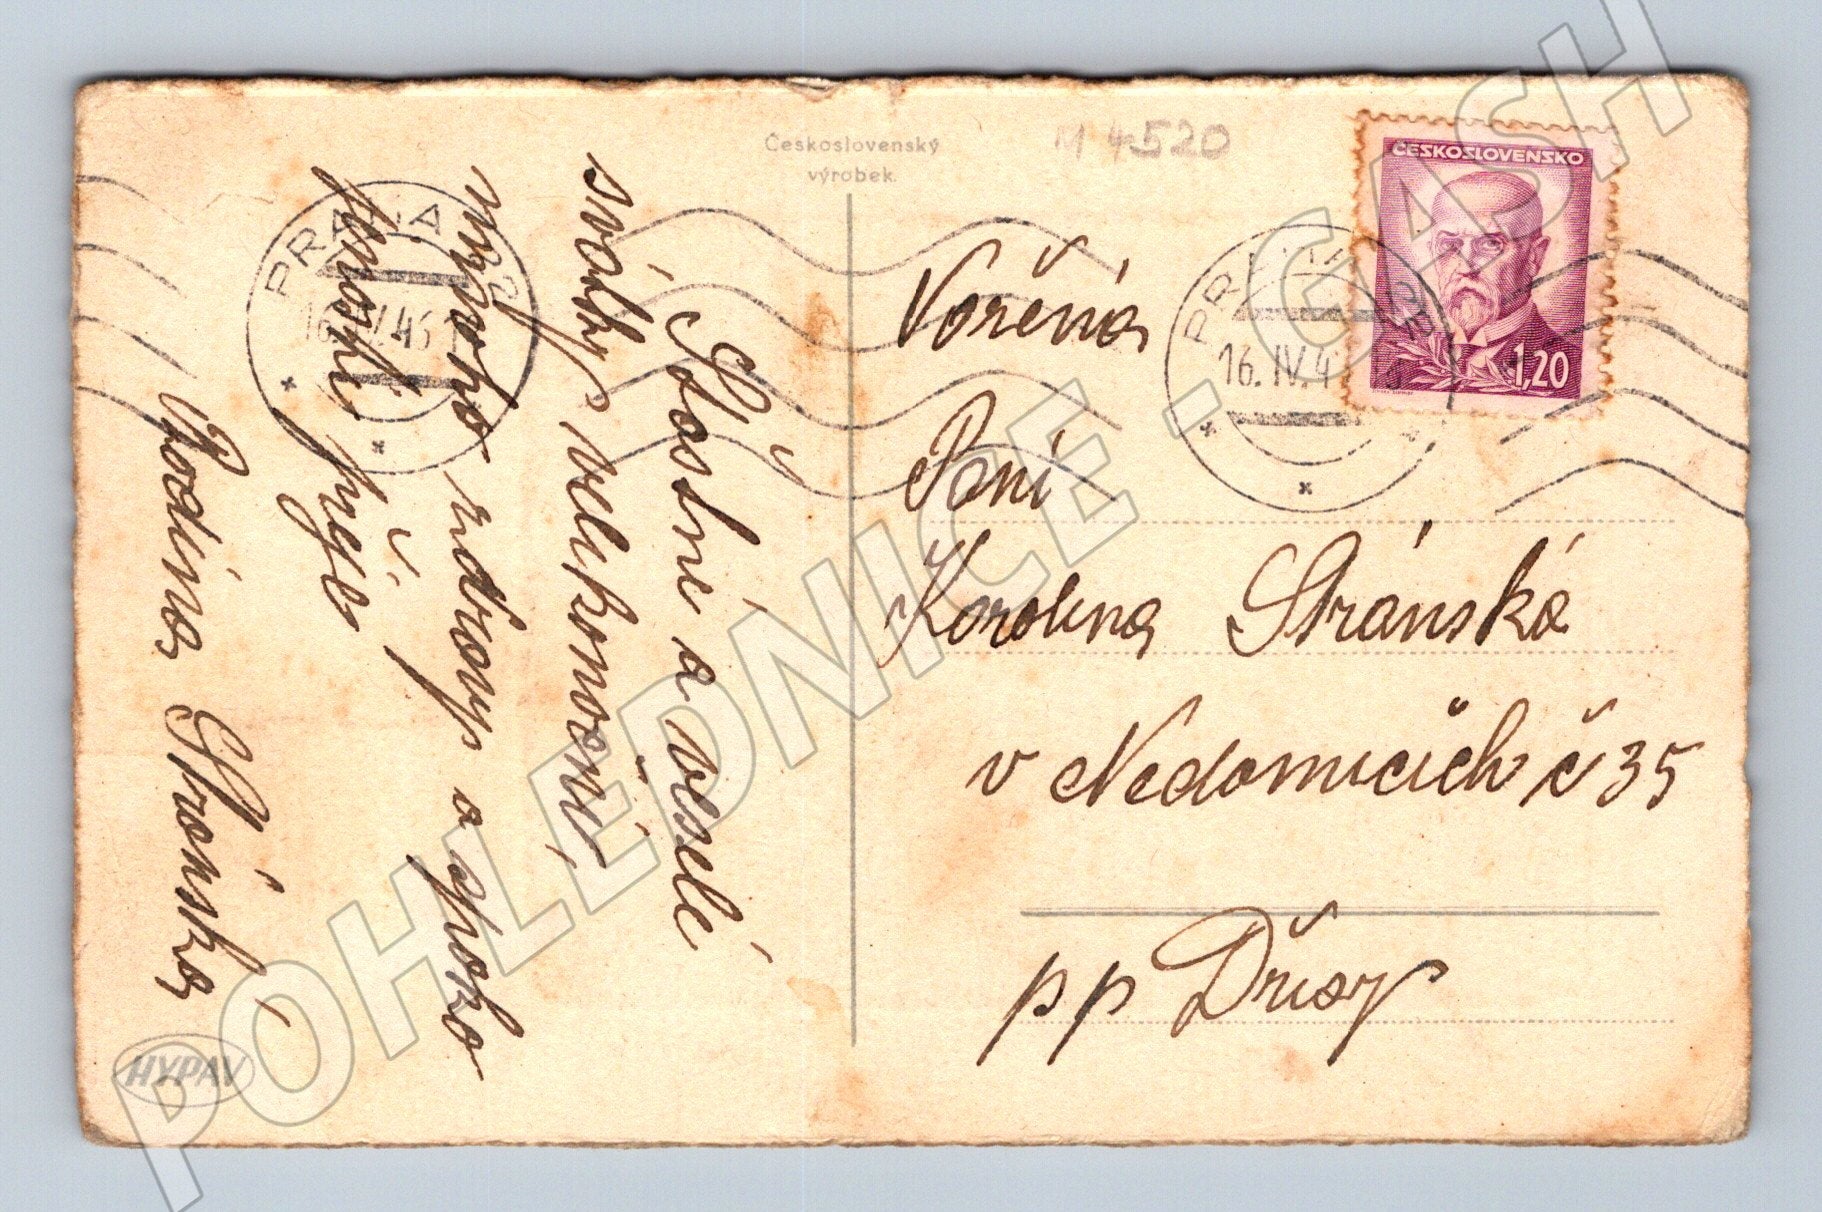 Československý
výrobek.
M 4520
ČESKOSLOVENSKO
1,20
PRAHA
16. IV. 46
PRAHA
16. IV. 4
Šťastné a veselé
svátky velikonoční,
mnoho zdraví a
přeje
Rodina Stránská
Vážená
Paní
Karolina Stránská
v Nedomicích č 35
pp Dřísy
HYPAV
POHLEDNICE.GASH